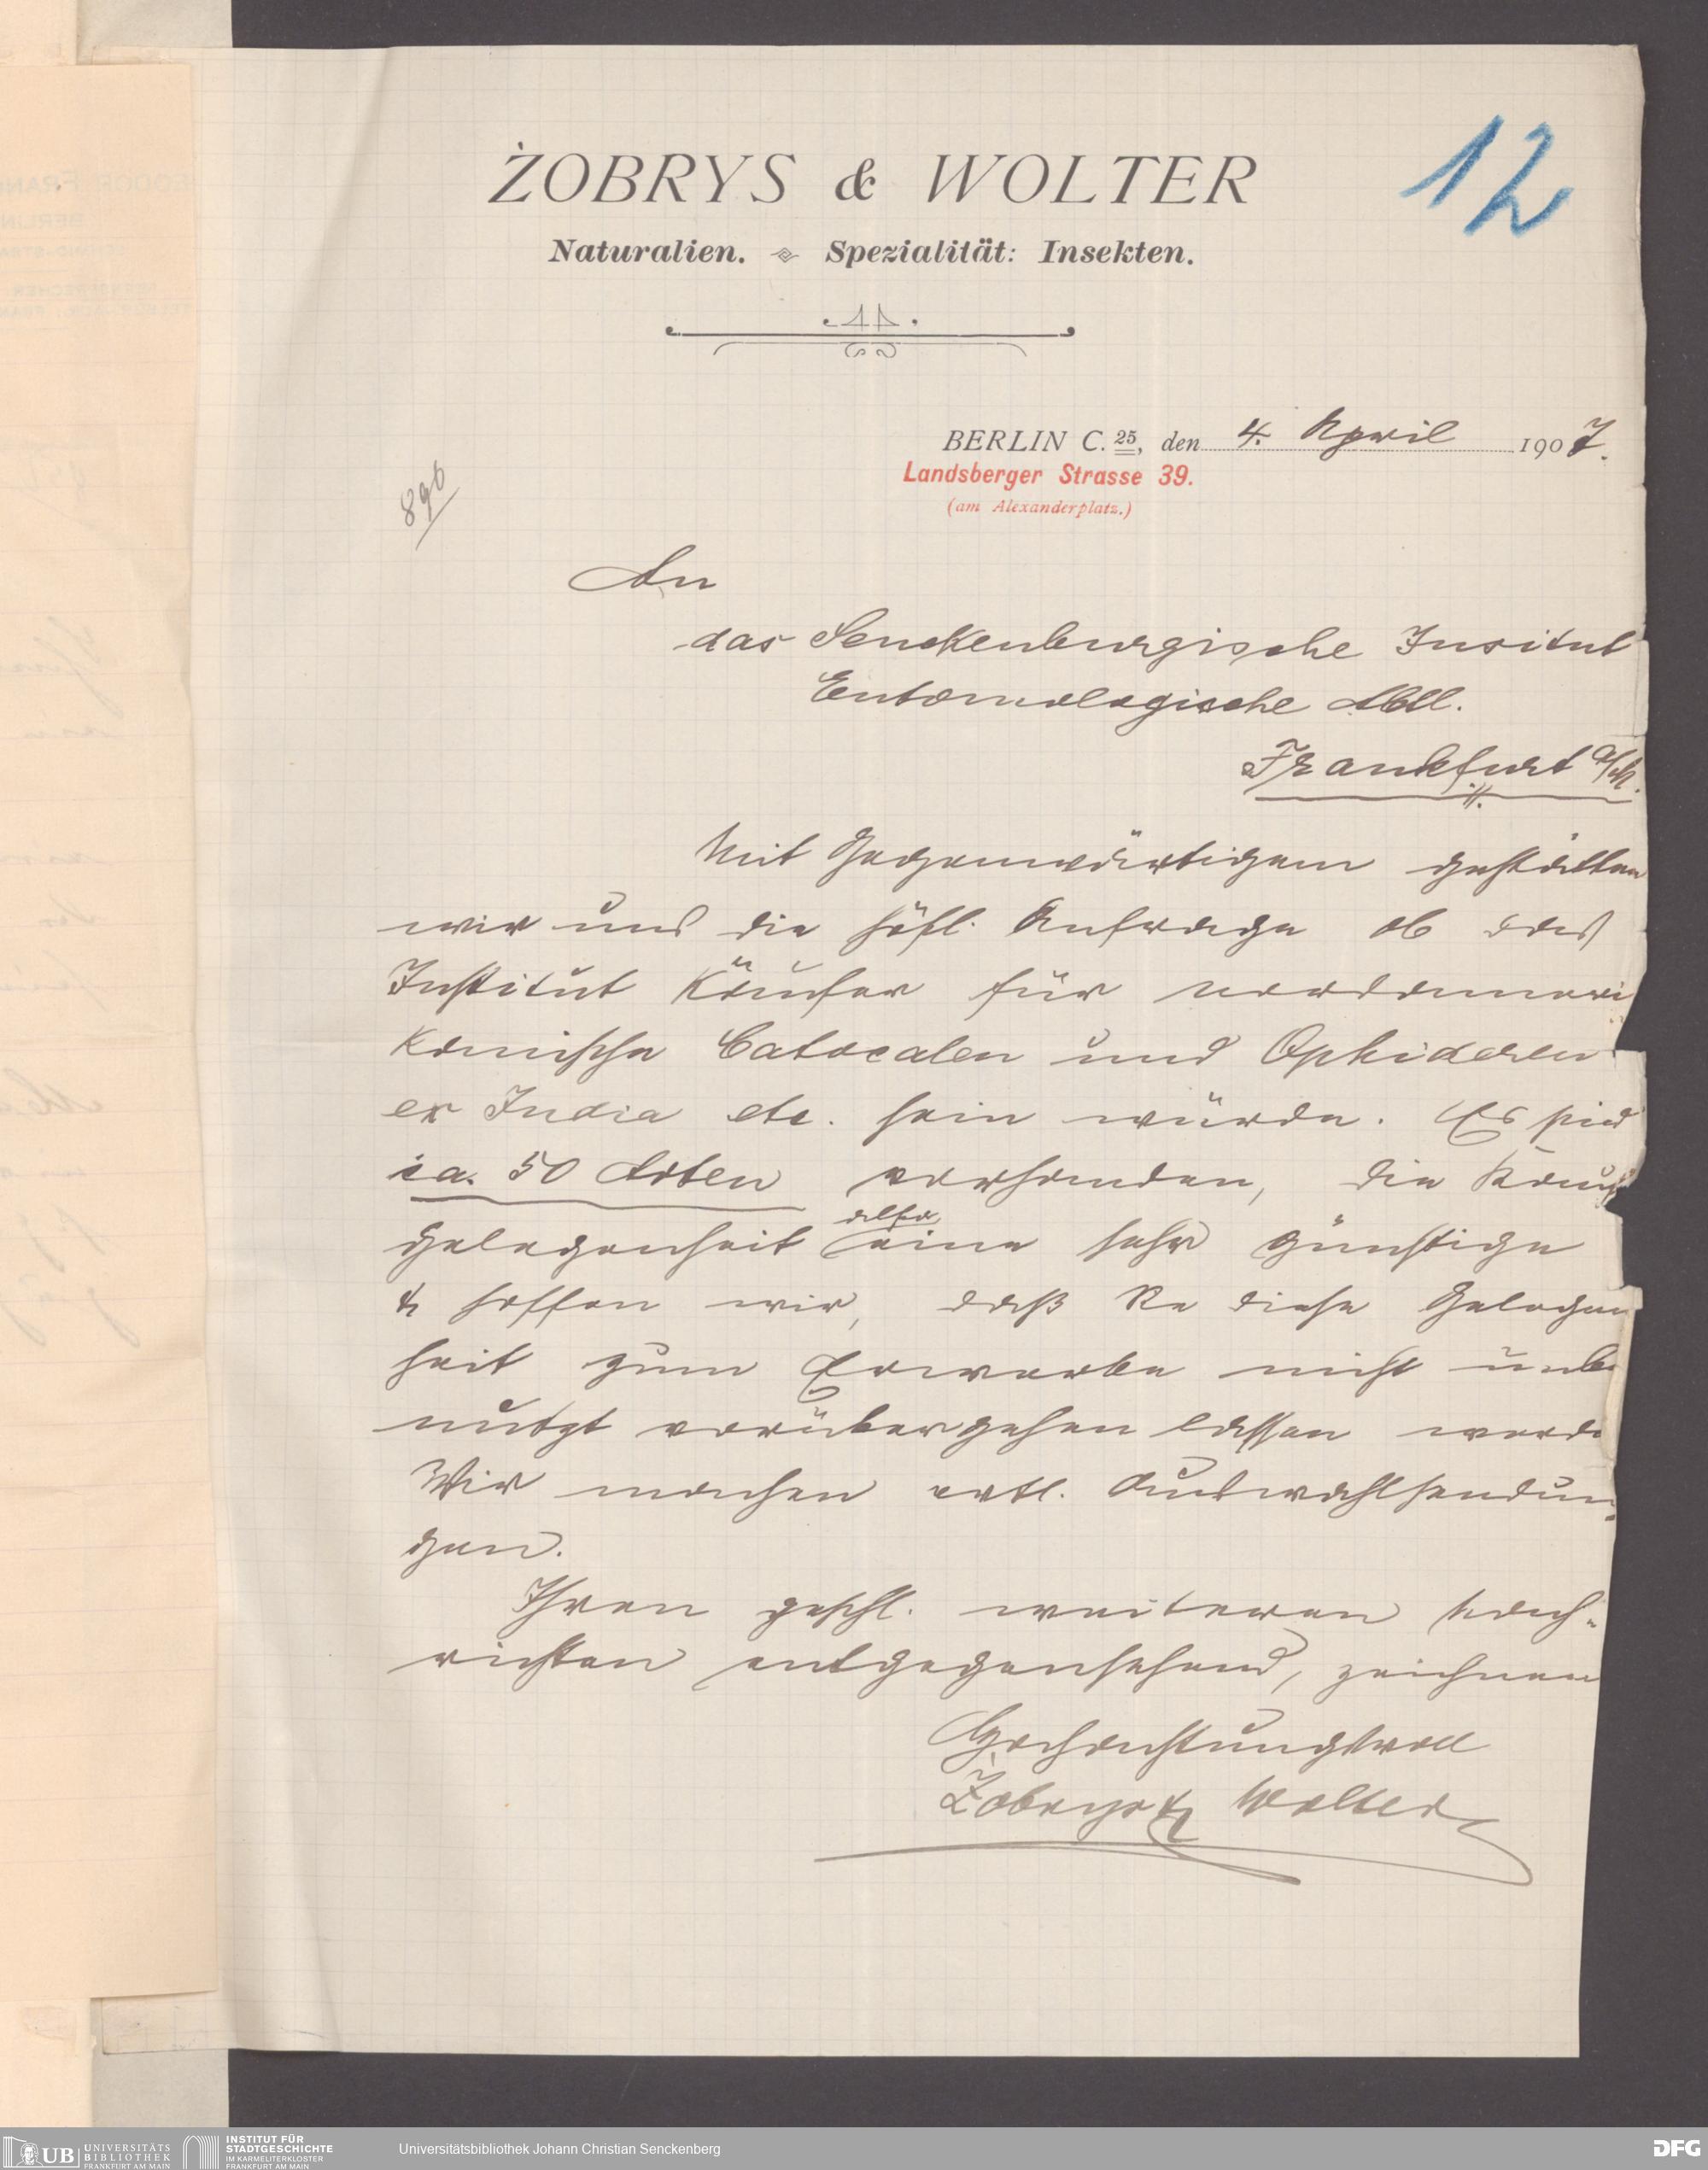 12
ŻOBRYS & WOLTER
Naturalien. Spezialität: Insekten.
BERLIN C. 25, den 4. April 1907.
Landsberger Strasse 39.
(am Alexanderplatz.)
890
An
das Senckenburgische Insitut
Entomologische Abtl.
Frankfurt a/M.
Mit Gegenwärtigem gestatten
wir uns die höfl. Anfrage ob das
Institut Käufer für nordameri
kanische Catocalen und Ophideren
ex India etc. sein würde. Es sind
ca. 50 Arten vorhanden, die Kauf
gelegenheit also eine sehr günstige
& hoffen wir, daß Sie diese Gelegen
heit zum Erwerbe nicht unbe
nutzt vorübergehen lassen werde
Wir machen evtl. Auswahlsendun
gen.
Ihren geschl. weiteren Nach-
richten entgegensehend, zeichnen
Hochachtungsvoll
Żobrys & Wolter
UB UNIVERSITÄTS
BIBLIOTHEK
FRANKFURT AM MAIN
INSTITUT FÜR
STADTGESCHICHTE
IM KARMELITERKLOSTER
FRANKFURT AM MAIN
Universitätsbibliothek Johann Christian Senckenberg
DFG